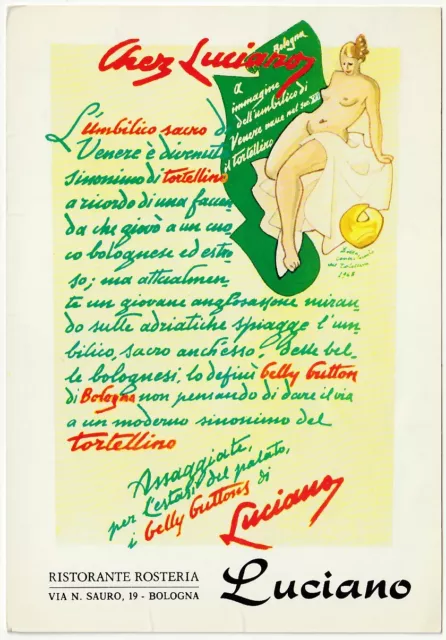 Chez Luciano
Bologna
a
immagine
dell'umbilico di
Venere nasce nel
il tortellino
L'umbilico sacro di
Venere è divenuto
sinonimo di tortellino
a ricordo di una faccen
da che giovò a un cuo
co bolognese ed estro
so; ma attualmen
te un giovane anglosassone miran
do sulle adriatiche spiagge l'um
bilico, sacro anch'esso, delle bel
le bolognesi, lo definì belly button
di Bologna non pensando di dare il via
a un moderno sinonimo del
tortellino
Assaggiate,
per l'estasi del palato,
i belly buttons di
Luciano
RISTORANTE ROSTERIA
VIA N. SAURO, 19 - BOLOGNA
Luciano